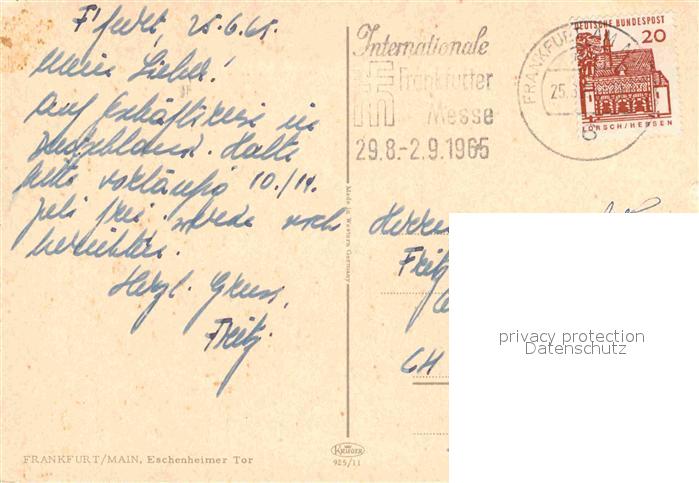 F'furt, 25.6.65.
Mein Lieber!
Auf Geschäftsreise in
Deutschland. Halte
bitte vorläufig 10./11.
Juli frei. Werde noch
berichten.
Herzl. Gruss,
Fritz
FRANKFURT/MAIN, Eschenheimer Tor
Made in Western Germany
KRÜGER
925/11
Internationale
Frankfurter
Messe
29.8.-2.9.1965
FRANKFURT AM
25.
DEUTSCHE BUNDESPOST
20
LORSCH/HESSEN
Herrn
Fritz
CH
privacy protection
Datenschutz